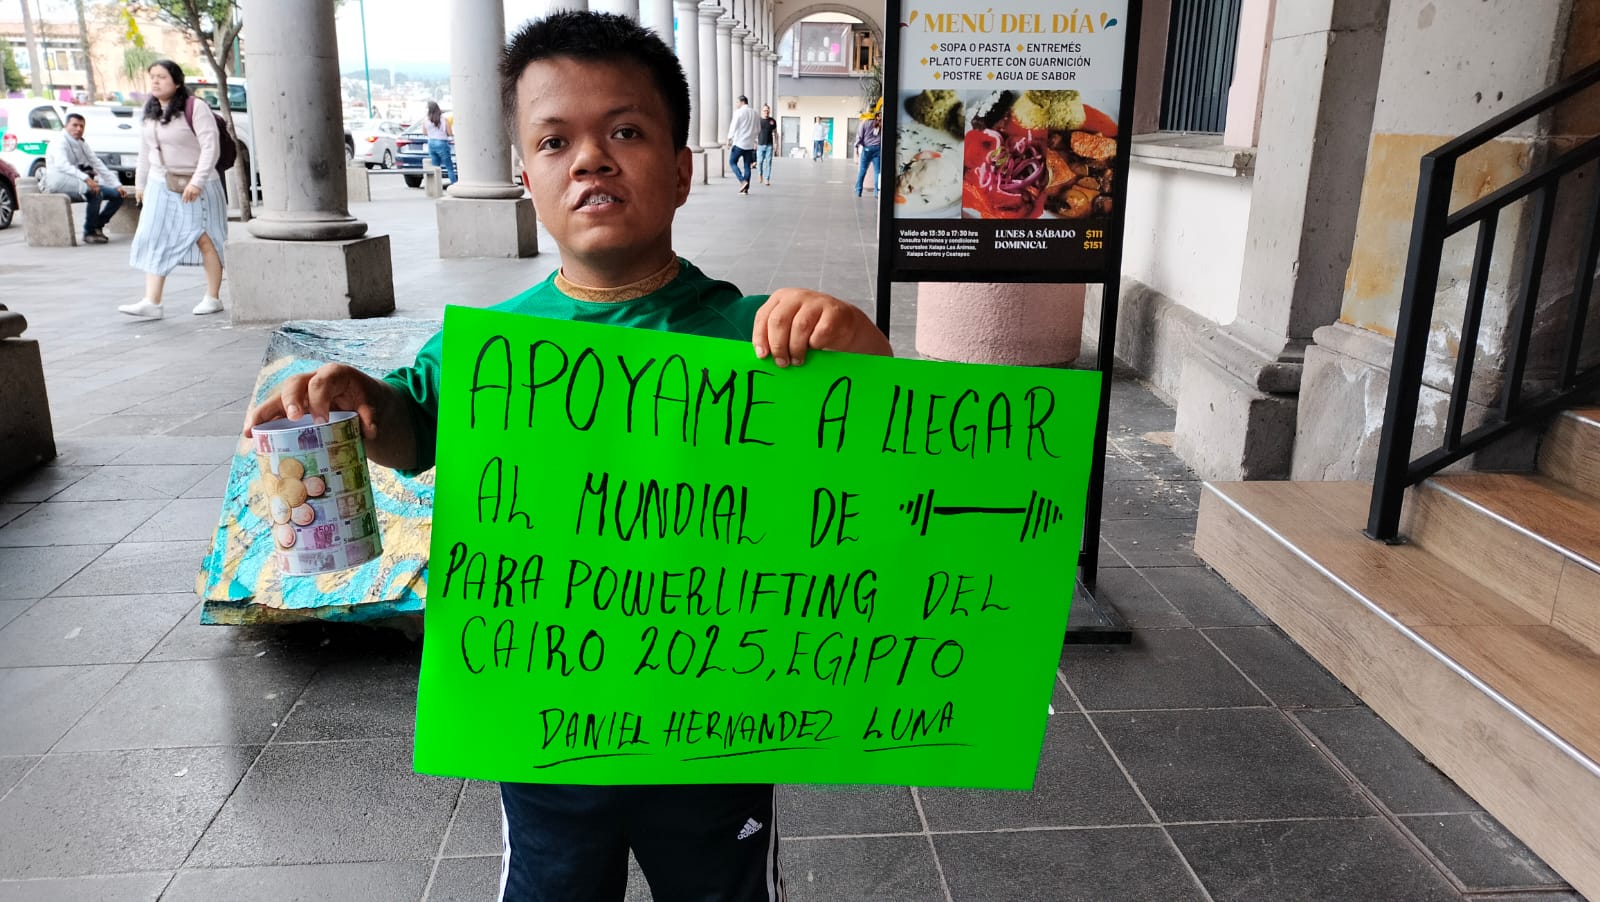 MENÚ DEL DÍA
SOPA O PASTA ENTREMÉS
PLATO FUERTE CON GUARNICIÓN
POSTRE AGUA DE SABOR
Valido de 13:30 a 17:30 hrs
Consulta términos y condiciones
Sucursales Xalapa Las Ánimas,
Xalapa Centro y Coatepec
LUNES A SÁBADO $111
DOMINICAL $151
APOYAME A LLEGAR
AL MUNDIAL DE
PARA POWERLIFTING DEL
CAIRO 2025, EGIPTO
DANIEL HERNANDEZ LUNA
adidas
500